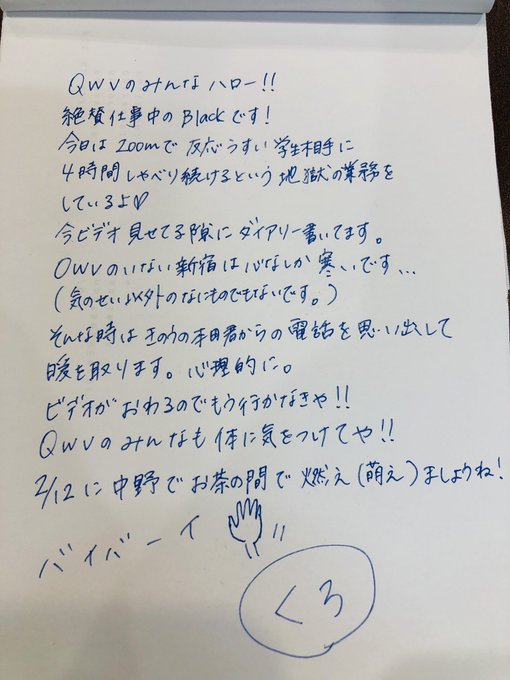 QWVのみんなハロー!!
絶賛仕事中のBlackです!
今日はzoomで反応うすい学生相手に
4時間しゃべり続けるという地獄の業務を
しているよ♡
今ビデオ見せてる隙にダイアリー書いてます。
OWVのいない新宿は心なしか寒いです…
(気のせい以外のなにものでもないです。)
そんな時はきのうの本田君からの電話を思い出して
暖を取ります。心理的に。
ビデオがおわるのでもう行かなきゃ!!
QWVのみんなも体に気をつけてや!!
2/12に中野でお茶の間で燃え(萌え)ましょうね!
バイバーイ
くろ